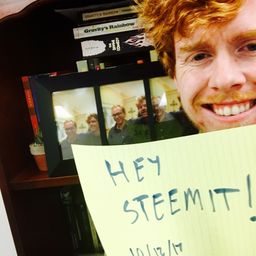 Gravity's Rainbow
HEY
STEEMIT!
10/12/17